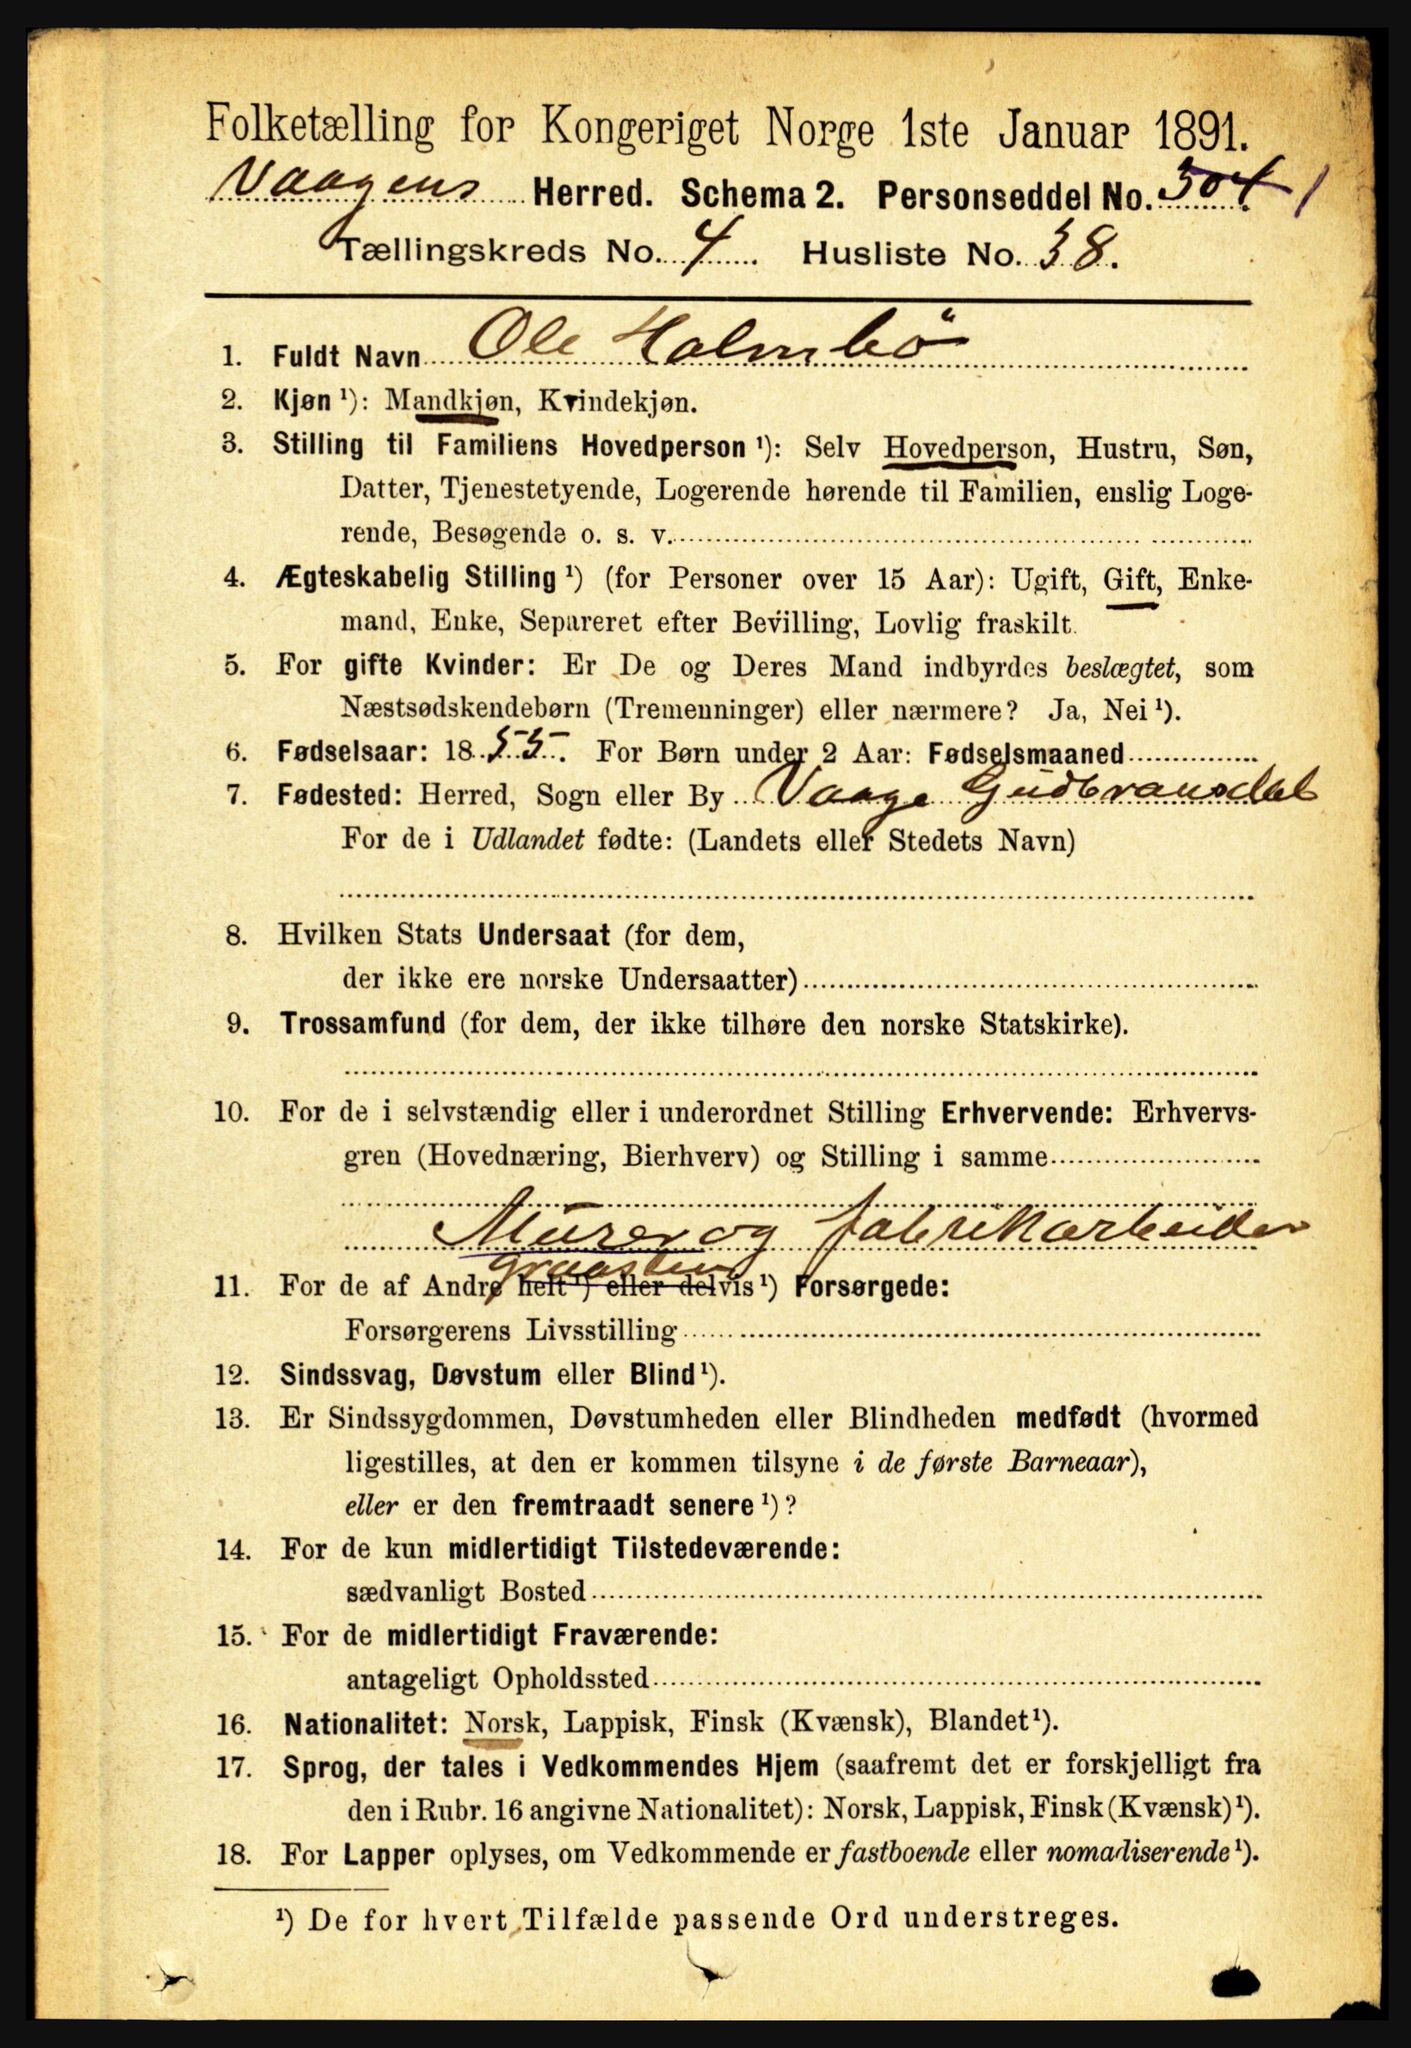 Folketælling for Kongeriget Norge 1ste Januar 1891.
Vaagens Herred. Schema 2. Personseddel No. 304 1
Tællingskreds No. 4 Husliste No. 38.
1. Fuldt Navn Ole Holmbö
2. Kjøn ¹): Mandkjøn, Kvindekjøn.
3. Stilling til Familiens Hovedperson ¹): Selv Hovedperson, Hustru, Søn,
Datter, Tjenestetyende, Logerende hørende til Familien, enslig Loge-
rende, Besøgende o. s. v.
4. Ægteskabelig Stilling ¹) (for Personer over 15 Aar): Ugift, Gift, Enke-
mand, Enke, Separeret efter Bevilling, Lovlig fraskilt.
5. For gifte Kvinder: Er De og Deres Mand indbyrdes beslægtet, som
Næstsødskendebørn (Tremenninger) eller nærmere? Ja, Nei ¹).
6. Fødselsaar: 1855. For Børn under 2 Aar: Fødselsmaaned
7. Fødested: Herred, Sogn eller By Vaage Gudbransdal
For de i Udlandet fødte: (Landets eller Stedets Navn)
8. Hvilken Stats Undersaat (for dem,
der ikke ere norske Undersaatter)
9. Trossamfund (for dem, der ikke tilhøre den norske Statskirke).
10. For de i selvstændig eller i underordnet Stilling Erhvervende: Erhvervs-
gren (Hovednæring, Bierhverv) og Stilling i samme
Murer og fabrikarbeider
graasten
11. For de af Andre helt ¹) eller delvis ¹) Forsørgede:
Forsørgerens Livsstilling
12. Sindssvag, Døvstum eller Blind ¹).
13. Er Sindssygdommen, Døvstumheden eller Blindheden medfødt (hvormed
ligestilles, at den er kommen tilsyne i de første Barneaar),
eller er den fremtraadt senere ¹)?
14. For de kun midlertidigt Tilstedeværende:
sædvanligt Bosted
15. For de midlertidigt Fraværende:
antageligt Opholdssted
16. Nationalitet: Norsk, Lappisk, Finsk (Kvænsk), Blandet ¹).
17. Sprog, der tales i Vedkommendes Hjem (saafremt det er forskjelligt fra
den i Rubr. 16 angivne Nationalitet): Norsk, Lappisk, Finsk (Kvænsk) ¹).
18. For Lapper oplyses, om Vedkommende er fastboende eller nomadiserende ¹).
¹) De for hvert Tilfælde passende Ord understreges.